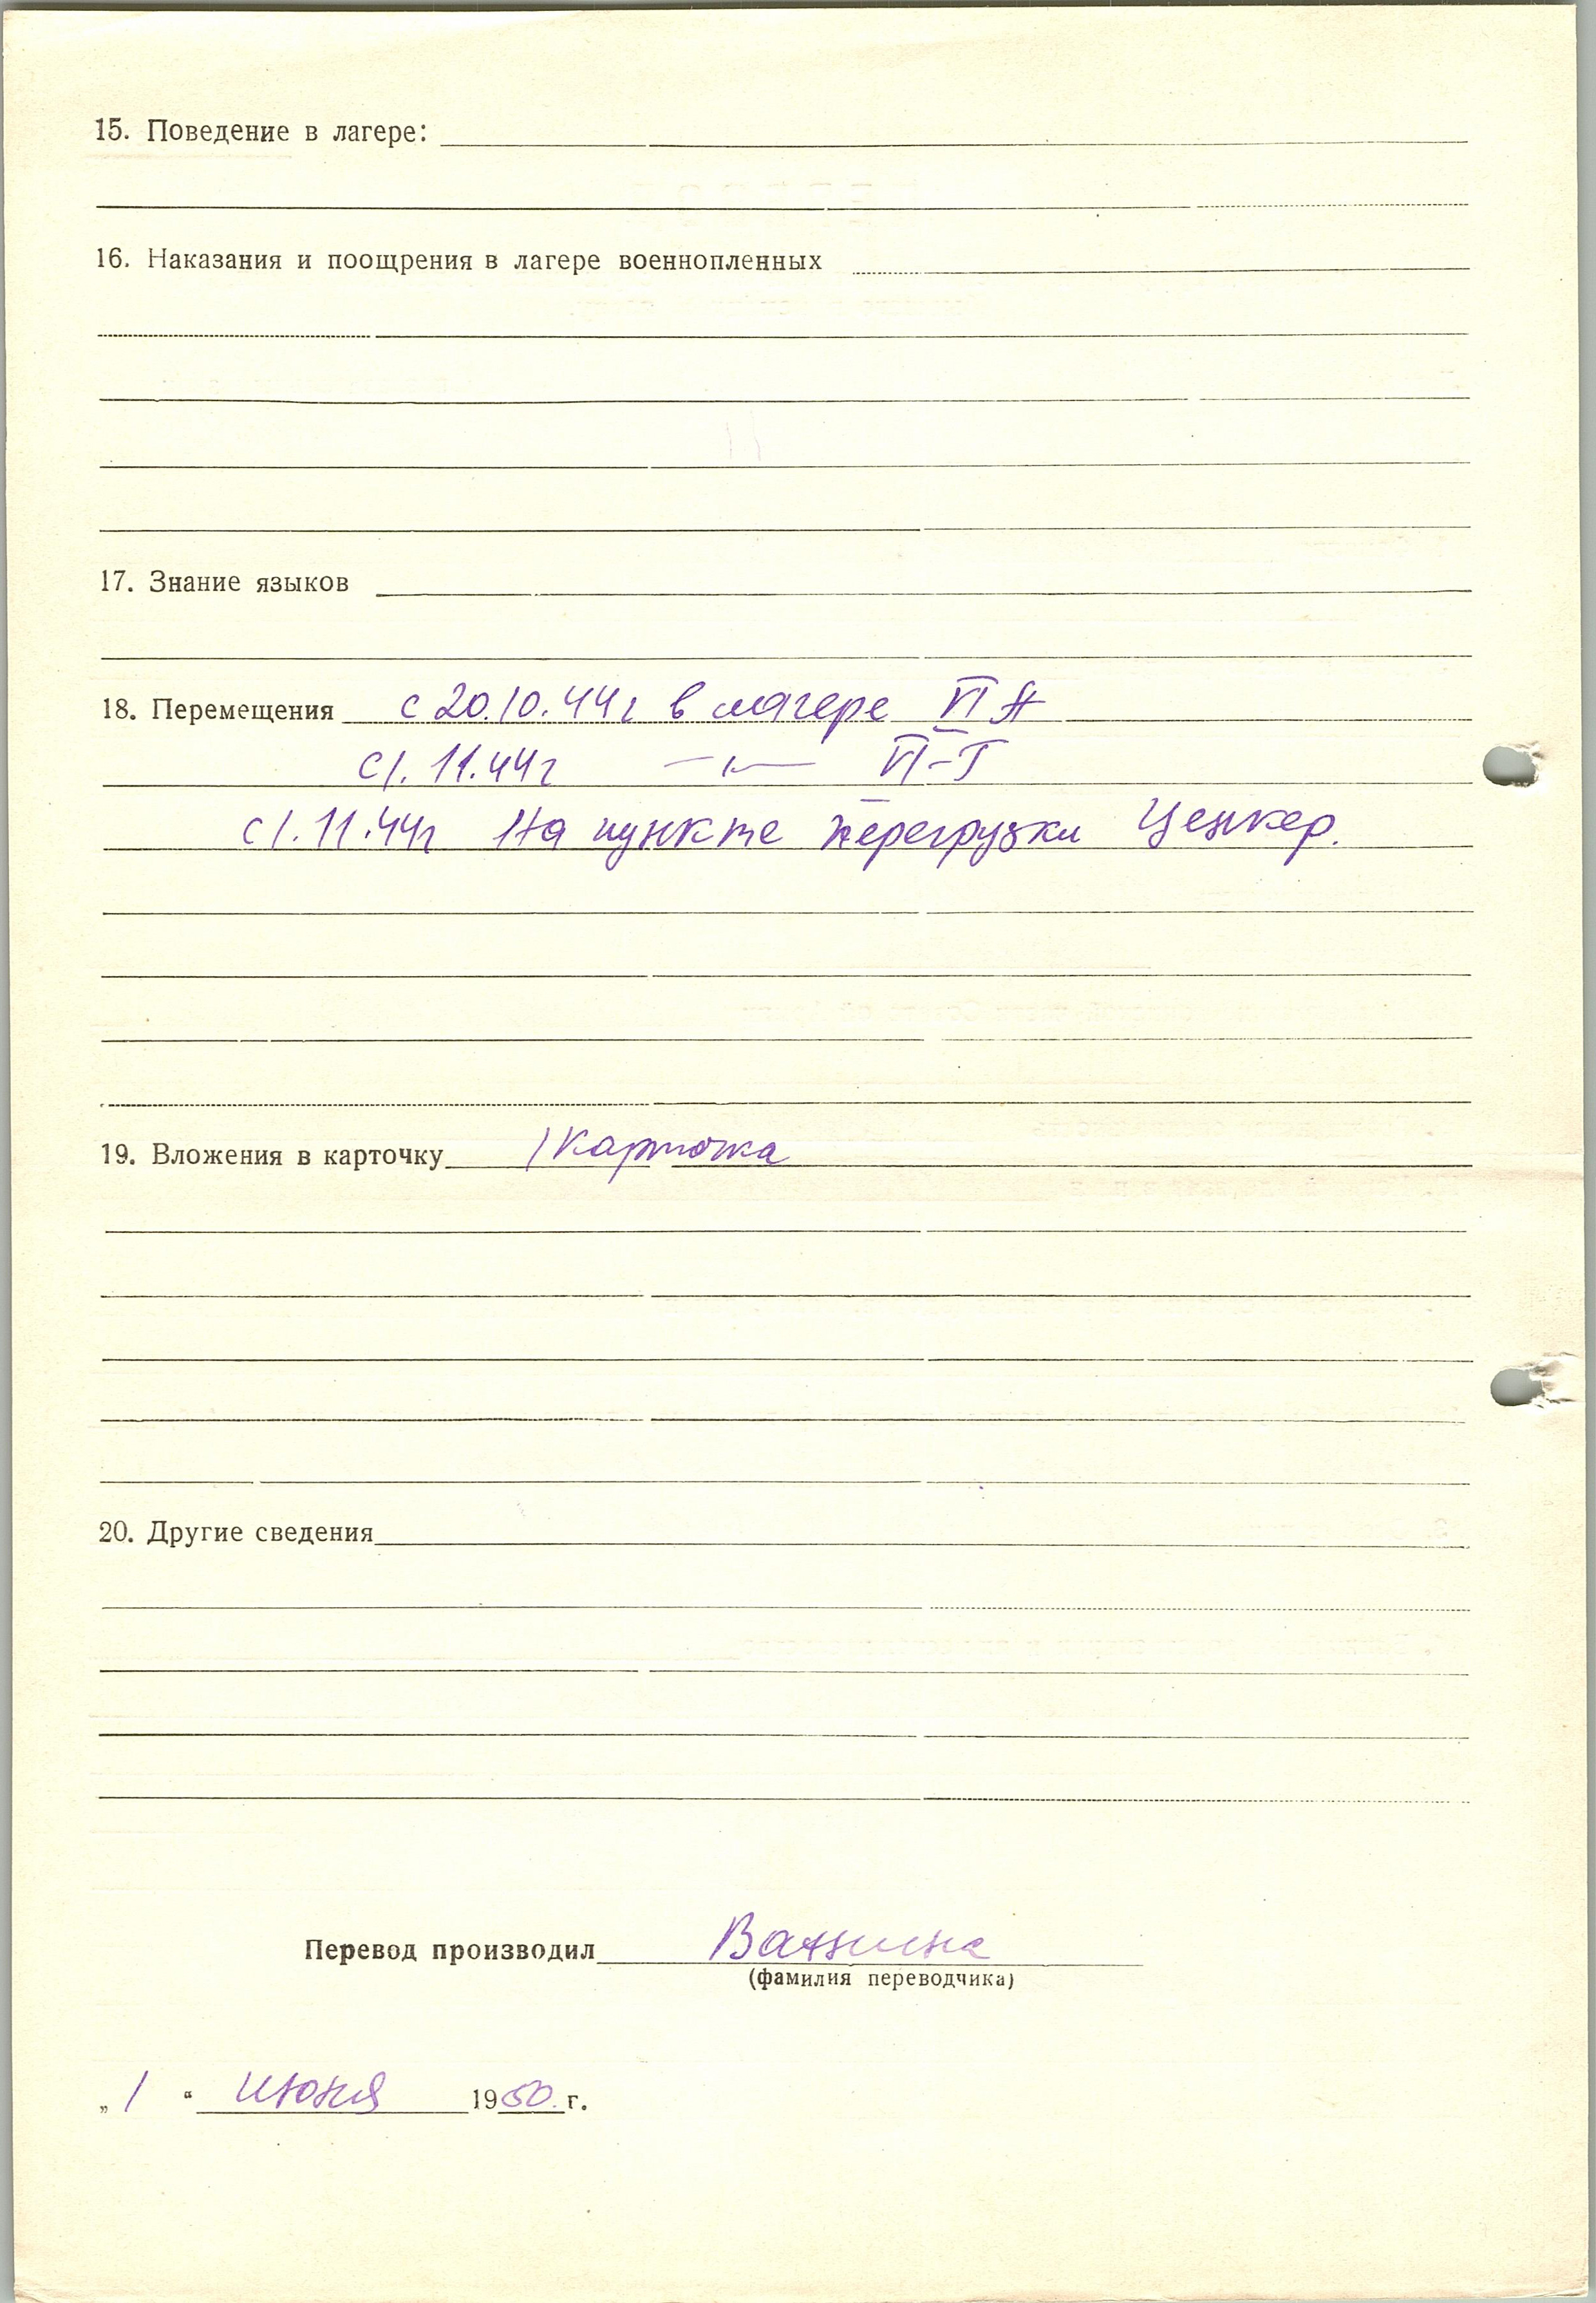 15. Поведение в лагере:
16. Наказания и поощрения в лагере военнопленных
17. Знание языков
18. Перемещения с 20.10.44г в лагере VI А
с 1.11.44г —"— VI-Г
с 1.11.44г На пункте перегрузки Ценкер.
19. Вложения в карточку 1 карточка
20. Другие сведения
Перевод производил Ванина
(фамилия переводчика)
„ 1 “ июня 1950 г.